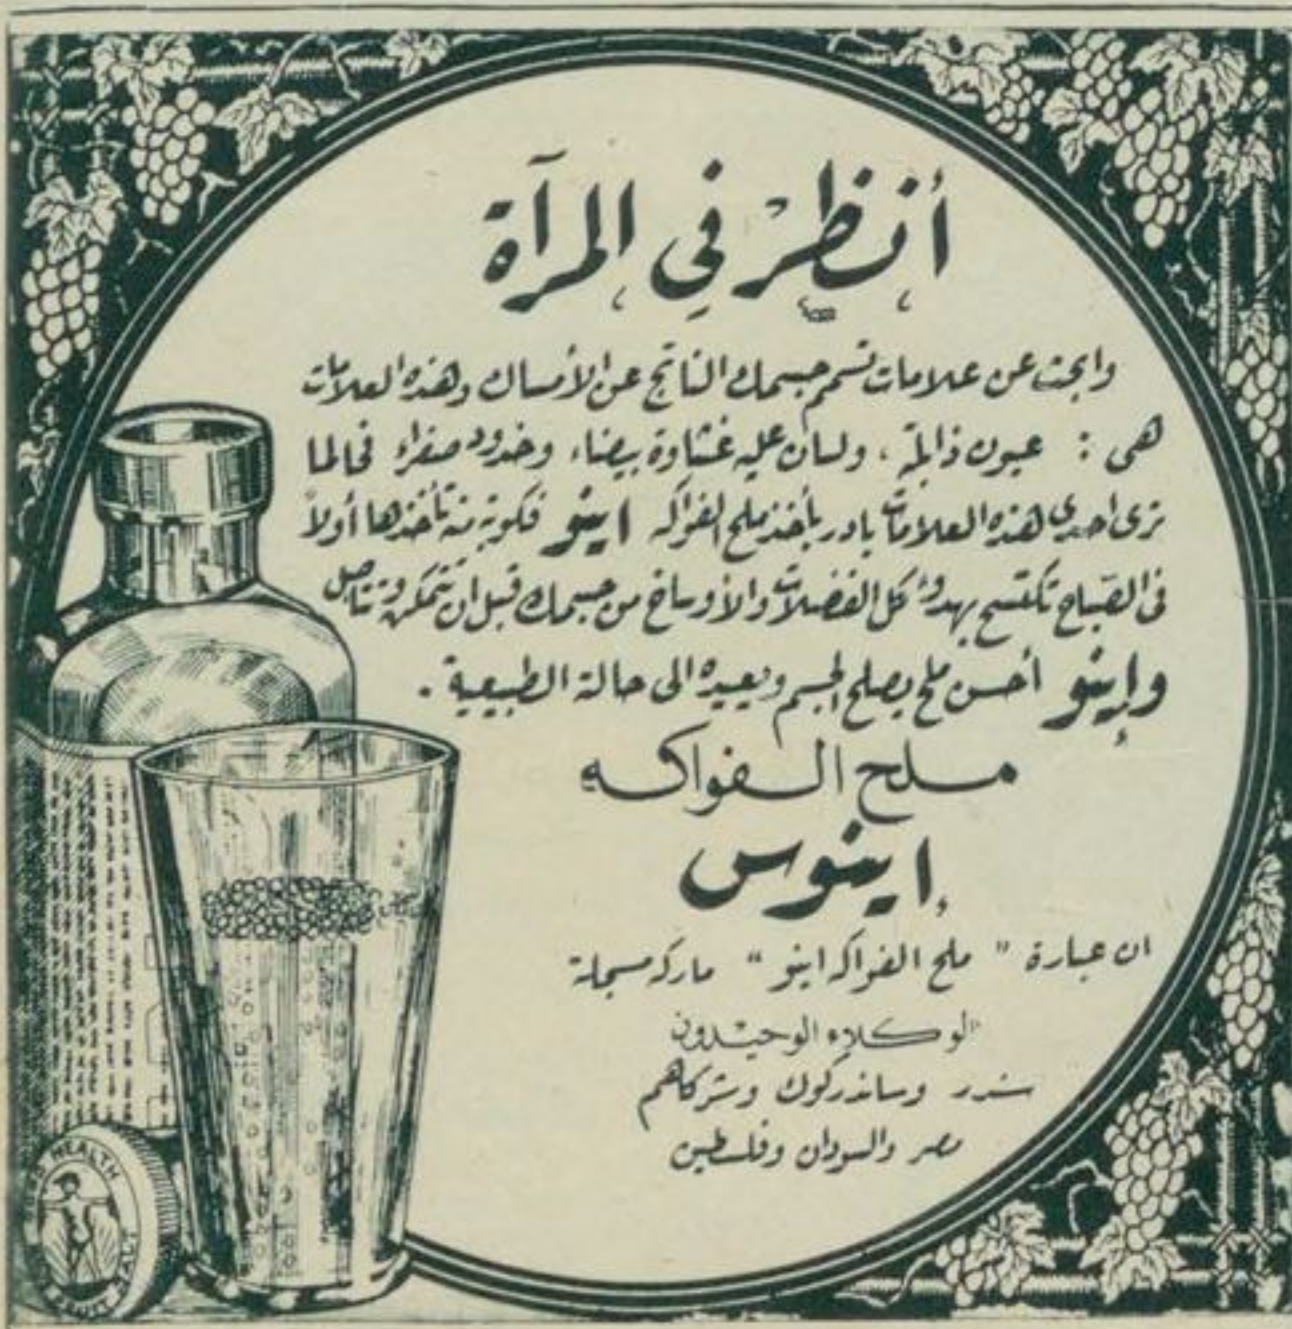 أنظر في المرآة
وابحث عن علامات تسمم جسمك الناتج عن الأمساك وهذه العلامات
هى : عيون ذابلة ، ولسان عليه غشاوة بيضاء وخدود صفراء فحالما
ترى احدى هذه العلامات بادر بأخذ ملح الفواكه اينو فكوبة منه تأخذها أولاً
فى الصباح تكتسح بهدوء كل الفضلات والأوساخ من جسمك قبل ان تتمكن وتتأصل
وإينو أحسن ملح يصلح الجسم ويعيده الى حالة الطبيعية .
ملح الفواكه
إينوس
ان عبارة " ملح الفواكه اينو " ماركة مسجلة
الوكلاء الوحيدون
سندر وساندركوك وشركاهم
مصر والسودان وفلسطين
HEALTH
FRUIT SALT